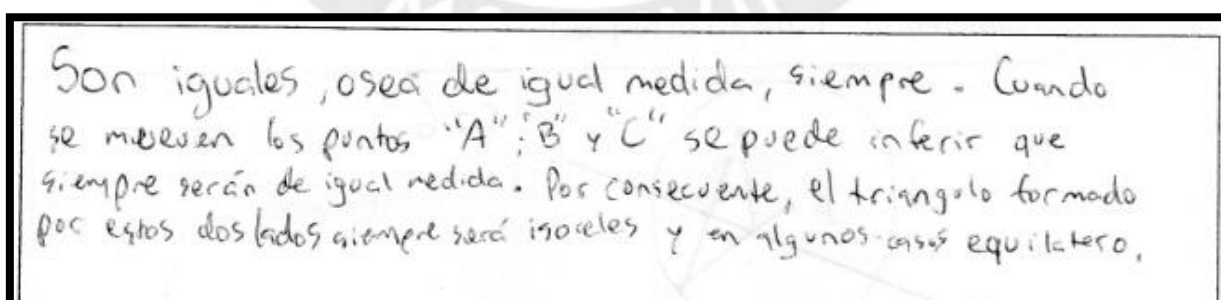 Son iguales, osea de igual medida, siempre. Cuando
se mueven los puntos "A"; "B" y "C" se puede inferir que
siempre serán de igual medida. Por consecuente, el triangulo formado
por estos dos lados siempre será isoceles y en algunos casos equilatero.